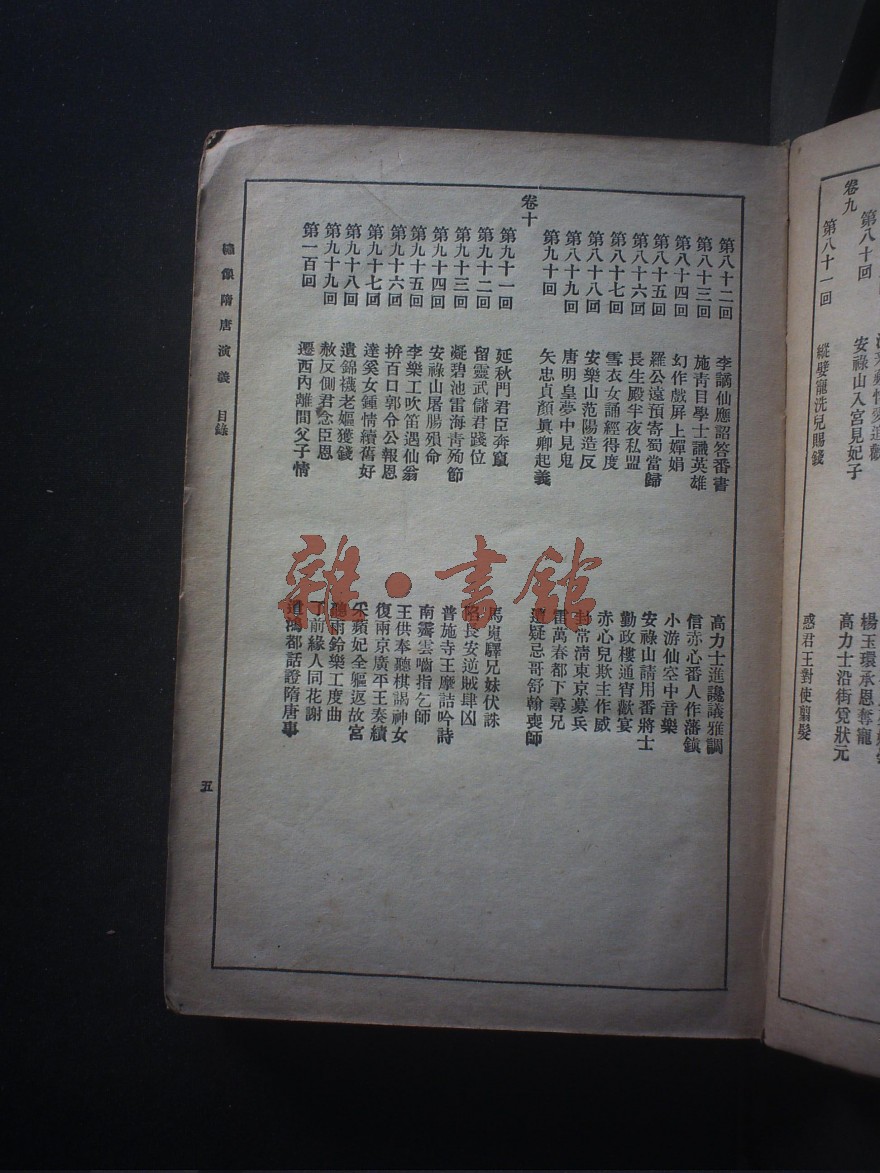 卷九
第八十回 安祿山入宮見妃子 高力士沿街覓狀元
第八十一回 縱嬖寵洗兒賜錢 惑君王對使翦髮
楊玉環承恩奪寵
第八十二回 李謫仙應詔答番書 高力士進讒議雅調
第八十三回 施青目學士識英雄 信赤心番人作藩鎭
第八十四回 幻作戲屏上嬋娟 小游仙空中音樂
第八十五回 羅公遠預寄蜀當歸 安祿山請用番將士
第八十六回 長生殿半夜私盟 勤政樓通宵歡宴
第八十七回 雪衣女誦經得度 赤心兒欺主作威
第八十八回 安樂山范陽造反 封常淸東京募兵
第八十九回 唐明皇夢中見鬼 雷萬春都下尋兄
第九十回 矢忠貞顏眞卿起義 遭疑忌哥舒翰喪師
卷十
第九十一回 延秋門君臣奔竄 馬嵬驛兄妹伏誅
第九十二回 留靈武儲君踐位 陷長安逆賊肆凶
第九十三回 凝碧池雷海青殉節 普施寺王摩詰吟詩
第九十四回 安祿山屠腸殞命 南霽雲嚙指乞師
第九十五回 李樂工吹笛遇仙翁 王供奉聽棋謁神女
第九十六回 拚百口郭令公報恩 復兩京廣平王奏績
第九十七回 達奚女鍾情續舊好 采蘋妃全軀返故宮
第九十八回 遺錦襪老嫗獲錢 聽雨鈴樂工度曲
第九十九回 赦反側君念臣恩 了前緣人同花謝
第一百回 遷西內離間父子情 遣鴻都話證隋唐事
繡像隋唐演義 目錄
五
雜·書館